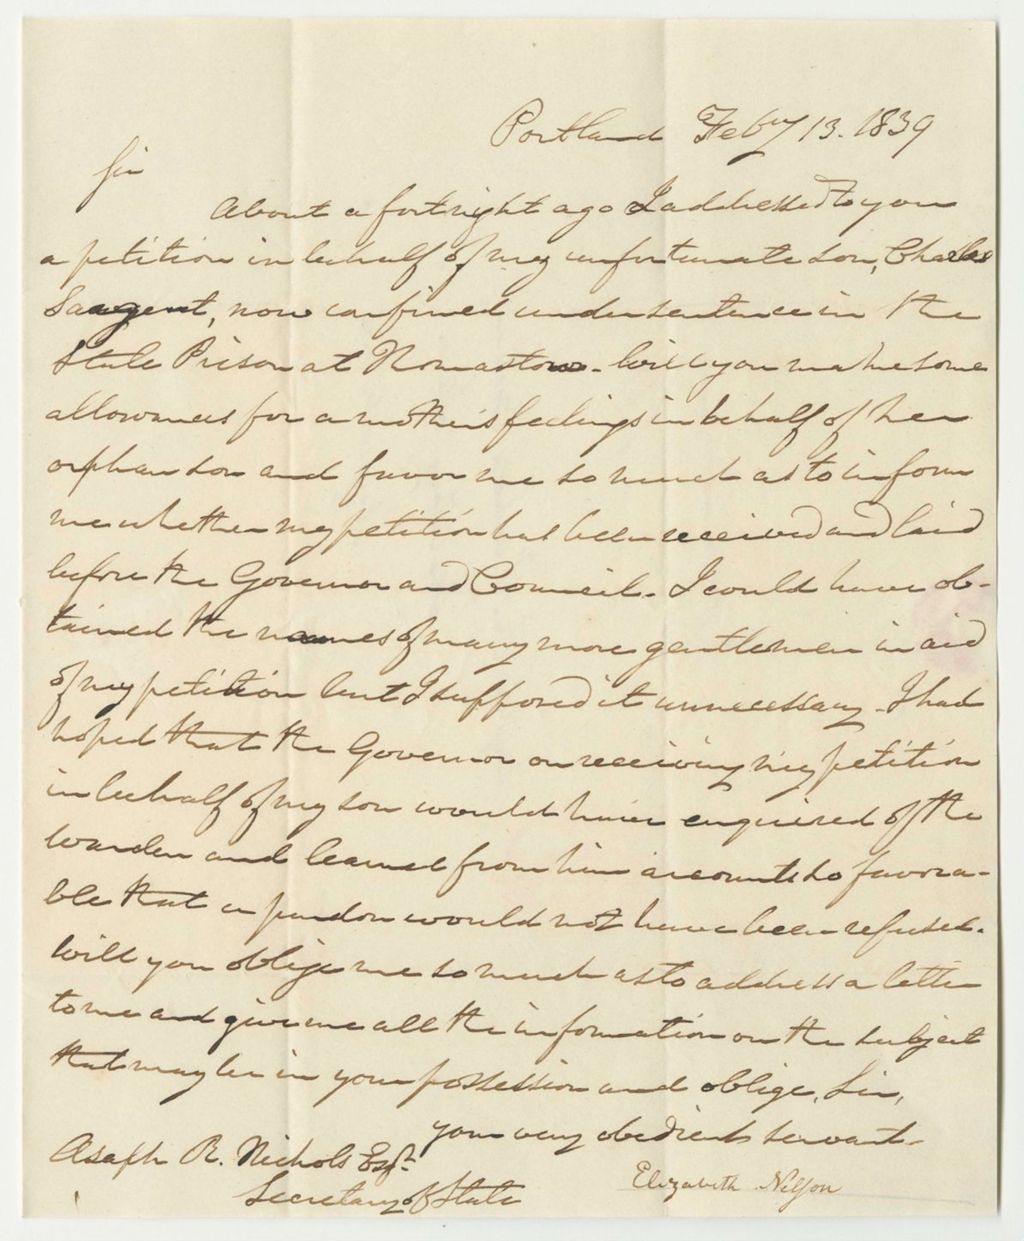 Portland Feby 13. 1839
Sir
About a fortnight ago I addressed to you
a petition in behalf of my unfortunate son, Charles
Sargent, now confined under sentence in the
State Prison at Thomaston. Will you make some
allowances for a mother's feelings in behalf of her
orphan son and favor me so much as to inform
me whether my petition has been received and laid
before the Governor and Council. I could have ob-
tained the names of many more gentlemen in aid
of my petition but I supposed it unnecessary. I had
hoped that the Governor on receiving my petition
in behalf of my son would have enquired of the
warden and learned from him accounts so favora-
ble that a pardon would not have been refused.
Will you oblige me so much as to address a letter
to me and give me all the information on the subject
that may be in your possession and oblige, Sir,
your very obedient servant.
Asaph R. Nichols Esqr.
Elizabeth Nelson
Secretary of State